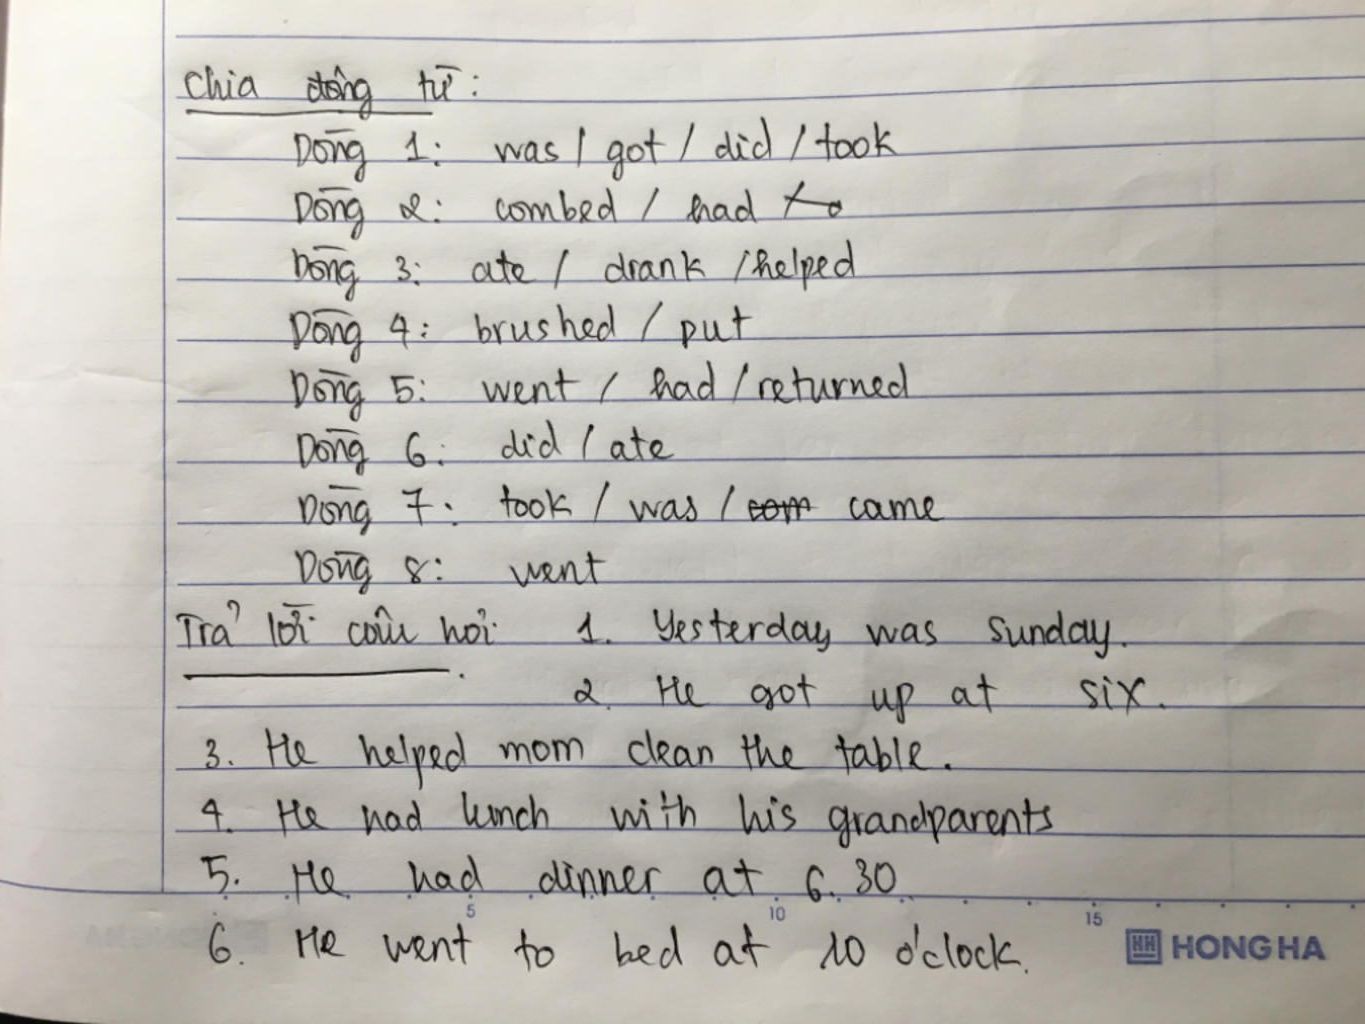 Chia động từ:
Dòng 1: was / got / did / took
Dòng 2: combed / had
Dòng 3: ate / drank / helped
Dòng 4: brushed / put
Dòng 5: went / had / returned
Dòng 6: did / ate
Dòng 7: took / was / com came
Dòng 8: went
Trả lời câu hỏi 1. Yesterday was Sunday.
2. He got up at six.
3. He helped mom clean the table.
4. He had lunch with his grandparents
5. He had dinner at 6.30
5 10 15
6. He went to bed at 10 o'clock.
HH HONG HA